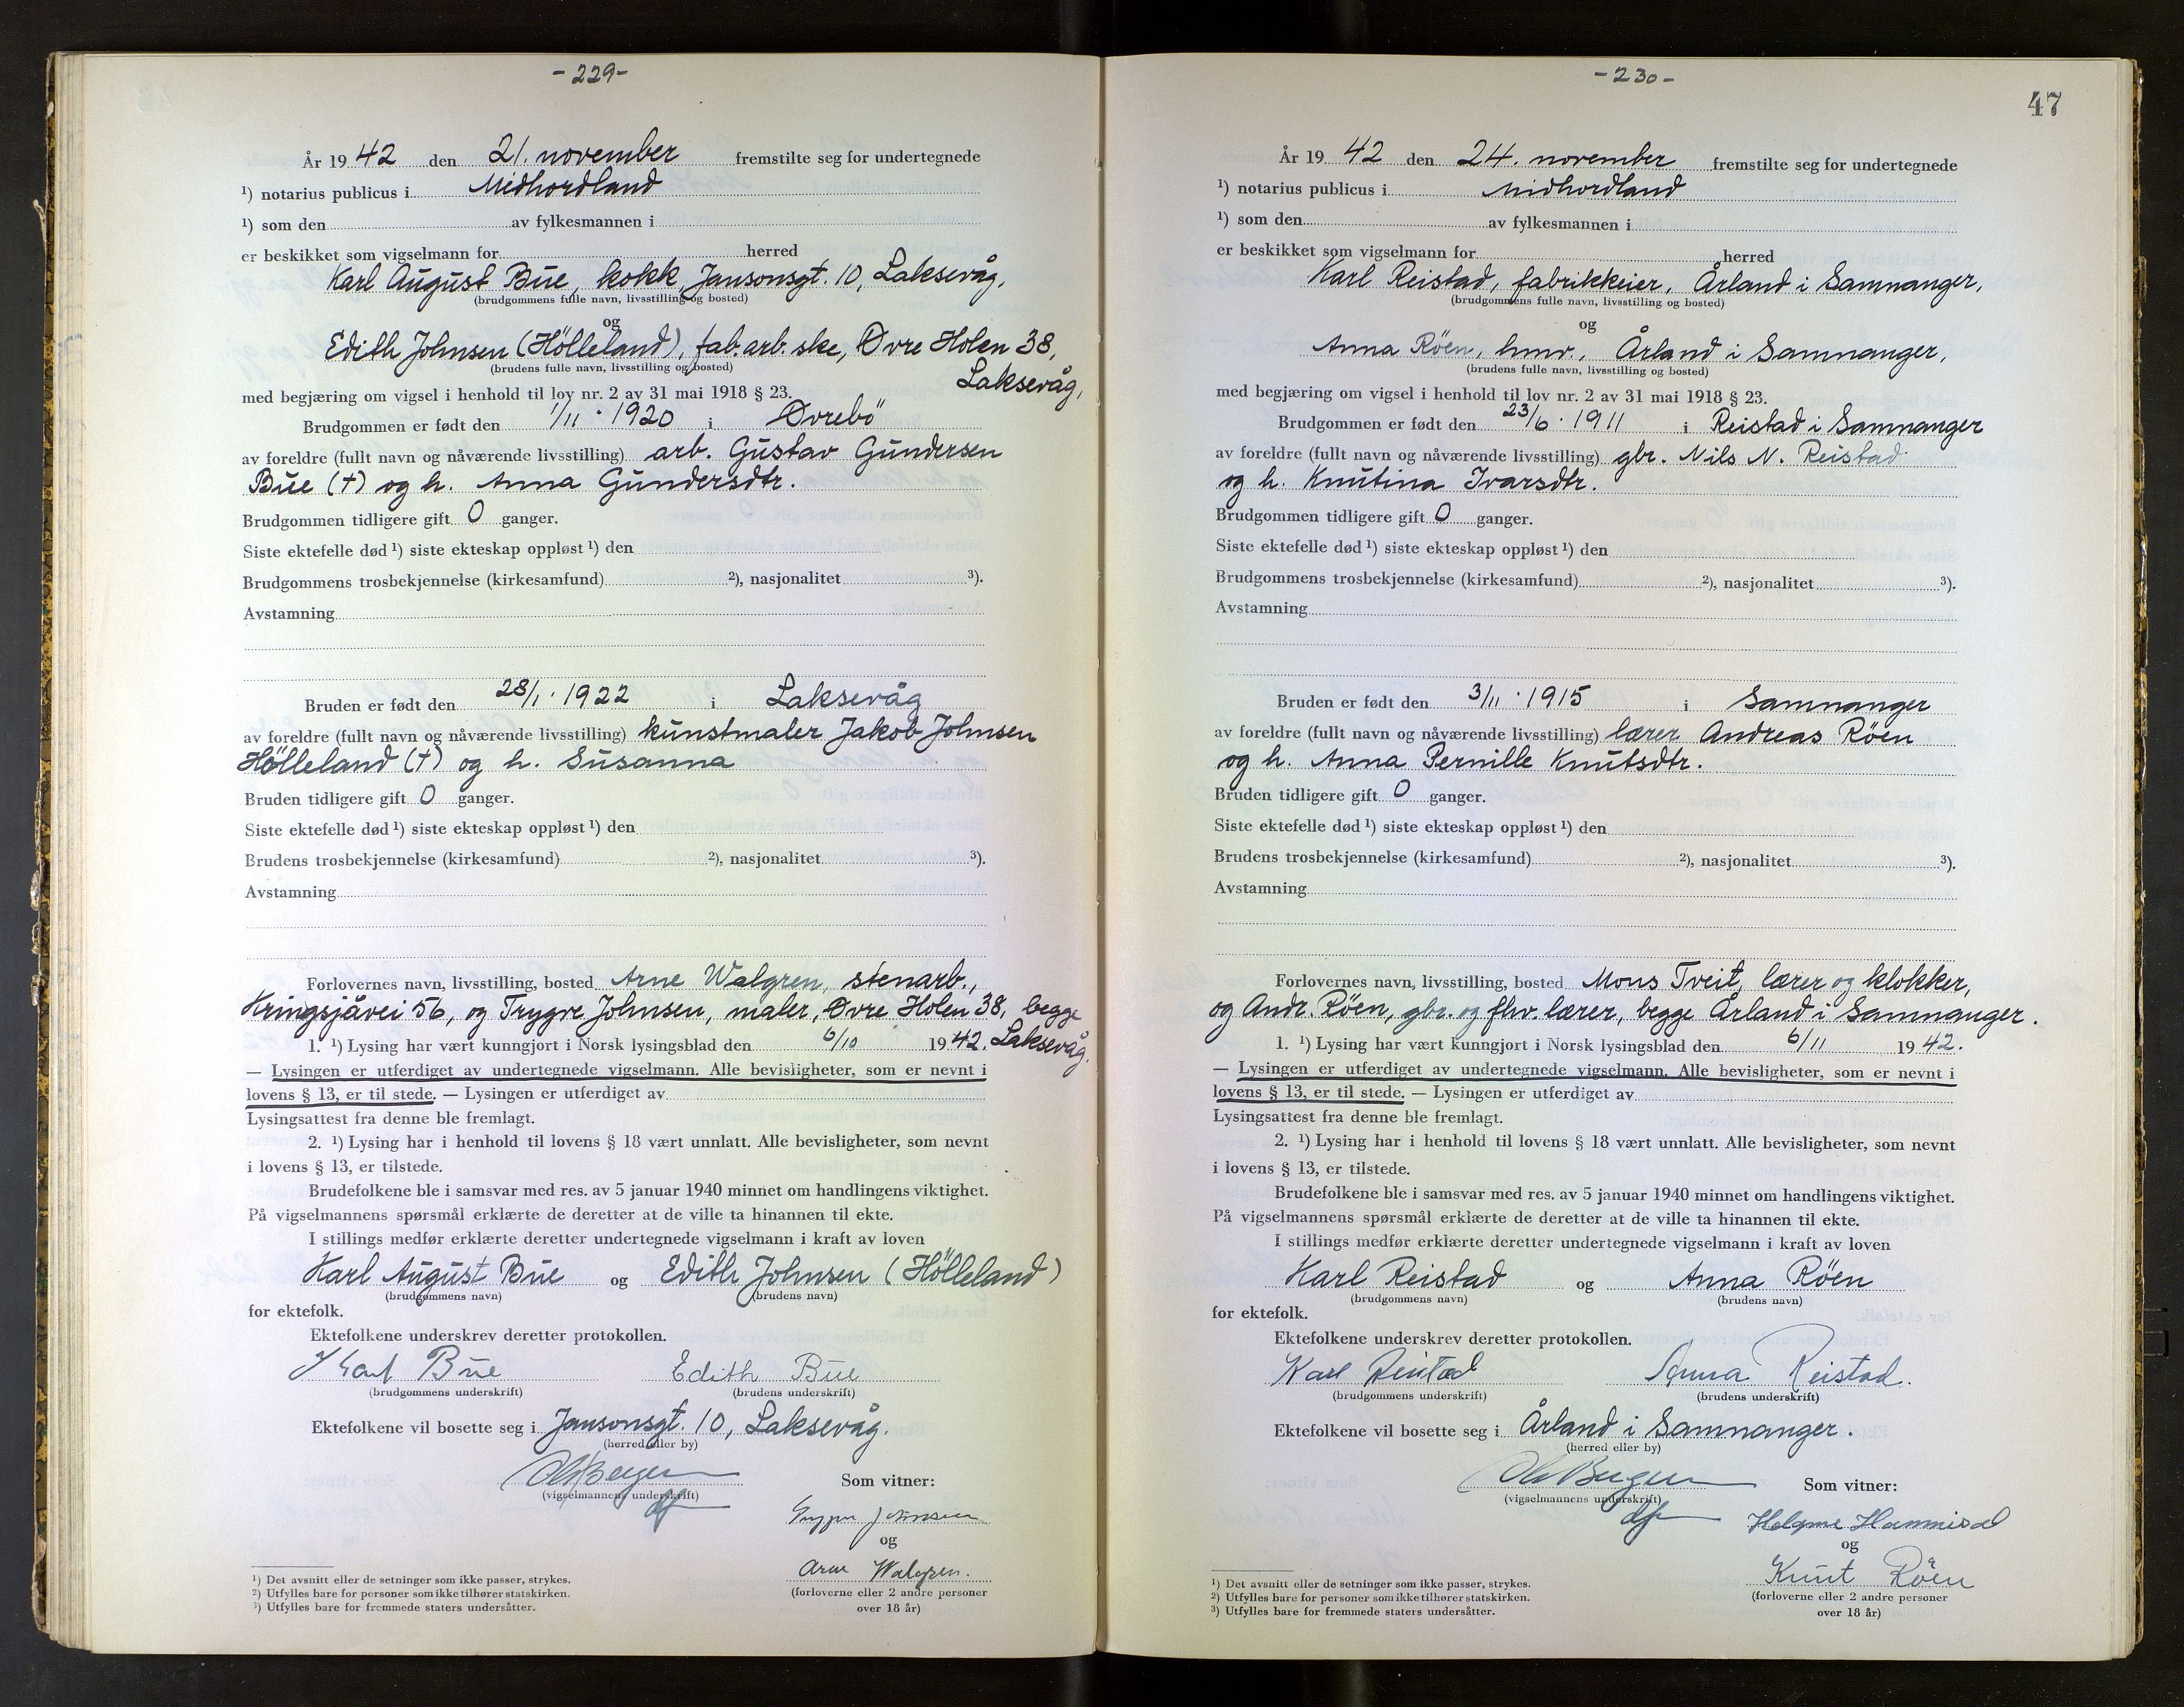 - 229 -
År 19 42 den 21. november fremstilte seg for undertegnede
¹) notarius publicus i Midhordland
¹) som den av fylkesmannen i
er beskikket som vigselmann for herred
Karl August Bue, kokk, Jansonsgt. 10, Laksevåg.
(brudgommens fulle navn, livsstilling og bosted)
og
Edith Johnsen (Hölleland), fab.arb.ske, Øvre Holen 38,
(brudens fulle navn, livsstilling og bosted)
Laksevåg,
med begjæring om vigsel i henhold til lov nr. 2 av 31 mai 1918 § 23.
Brudgommen er født den 1/11 · 1920 i Øvrebö
av foreldre (fullt navn og nåværende livsstilling) arb. Gustav Gundersen
Bue (†) og h. Anna Gundersdtr.
Brudgommen tidligere gift 0 ganger.
Siste ektefelle død ¹) siste ekteskap oppløst ¹) den
Brudgommens trosbekjennelse (kirkesamfund) ²), nasjonalitet ³).
Avstamning
Bruden er født den 28/1 · 1922 i Laksevåg
av foreldre (fullt navn og nåværende livsstilling) kunstmaler Jakob Johnsen
Hölleland (†) og h. Susanna
Bruden tidligere gift 0 ganger.
Siste ektefelle død ¹) siste ekteskap oppløst ¹) den
Brudens trosbekjennelse (kirkesamfund) ²), nasjonalitet ³).
Avstamning
Forlovernes navn, livsstilling, bosted Arne Walgren, stenarb.,
Kringsjåvei 56, og Trygve Johnsen, maler, Øvre Holen 38, begge
1. ¹) Lysing har vært kunngjort i Norsk lysingsblad den 6/10 19 42. Laksevåg.
— Lysingen er utferdiget av undertegnede vigselmann. Alle bevisligheter, som er nevnt i
lovens § 13, er til stede. — Lysingen er utferdiget av
Lysingsattest fra denne ble fremlagt.
2. ¹) Lysing har i henhold til lovens § 18 vært unnlatt. Alle bevisligheter, som nevnt
i lovens § 13, er tilstede.
Brudefolkene ble i samsvar med res. av 5 januar 1940 minnet om handlingens viktighet.
På vigselmannens spørsmål erklærte de deretter at de ville ta hinannen til ekte.
I stillings medfør erklærte deretter undertegnede vigselmann i kraft av loven
Karl August Bue og Edith Johnsen (Hölleland)
(brudgommens navn) (brudens navn)
for ektefolk.
Ektefolkene underskrev deretter protokollen.
Karl Bue Edith Bue
(brudgommens underskrift) (brudens underskrift)
Ektefolkene vil bosette seg i Jansonsgt. 10, Laksevåg.
(herred eller by)
(vigselmannens underskrift)
Som vitner:
Trygve Johnsen
og
Arne Walgren.
(forloverne eller 2 andre personer
over 18 år)
¹) Det avsnitt eller de setninger som ikke passer, strykes.
²) Utfylles bare for personer som ikke tilhører statskirken.
³) Utfylles bare for fremmede staters undersåtter.
- 230 -
47
År 19 42 den 24. november fremstilte seg for undertegnede
¹) notarius publicus i Midhordland
¹) som den av fylkesmannen i
er beskikket som vigselmann for herred
Karl Reistad, fabrikkeier, Årland i Samnanger,
(brudgommens fulle navn, livsstilling og bosted)
og
Anna Röen, hmv., Årland i Samnanger,
(brudens fulle navn, livsstilling og bosted)
med begjæring om vigsel i henhold til lov nr. 2 av 31 mai 1918 § 23.
Brudgommen er født den 23/6 · 1911 i Reistad i Samnanger
av foreldre (fullt navn og nåværende livsstilling) gbr. Nils N. Reistad
og h. Knutina Ivarsdtr.
Brudgommen tidligere gift 0 ganger.
Siste ektefelle død ¹) siste ekteskap oppløst ¹) den
Brudgommens trosbekjennelse (kirkesamfund) ²), nasjonalitet ³).
Avstamning
Bruden er født den 3/11 · 1915 i Samnanger
av foreldre (fullt navn og nåværende livsstilling) lærer Andreas Röen
og h. Anna Pernille Knutsdtr.
Bruden tidligere gift 0 ganger.
Siste ektefelle død ¹) siste ekteskap oppløst ¹) den
Brudens trosbekjennelse (kirkesamfund) ²), nasjonalitet ³).
Avstamning
Forlovernes navn, livsstilling, bosted Mons Tveit, lærer og klokker,
og Andr. Röen, gbr. og fhv. lærer, begge Årland i Samnanger.
1. ¹) Lysing har vært kunngjort i Norsk lysingsblad den 6/11 19 42.
— Lysingen er utferdiget av undertegnede vigselmann. Alle bevisligheter, som er nevnt i
lovens § 13, er til stede. — Lysingen er utferdiget av
Lysingsattest fra denne ble fremlagt.
2. ¹) Lysing har i henhold til lovens § 18 vært unnlatt. Alle bevisligheter, som nevnt
i lovens § 13, er tilstede.
Brudefolkene ble i samsvar med res. av 5 januar 1940 minnet om handlingens viktighet.
På vigselmannens spørsmål erklærte de deretter at de ville ta hinannen til ekte.
I stillings medfør erklærte deretter undertegnede vigselmann i kraft av loven
Karl Reistad og Anna Röen
(brudgommens navn) (brudens navn)
for ektefolk.
Ektefolkene underskrev deretter protokollen.
Karl Reistad Anna Reistad.
(brudgommens underskrift) (brudens underskrift)
Ektefolkene vil bosette seg i Årland i Samnanger.
(herred eller by)
(vigselmannens underskrift)
Som vitner:
og
Knut Röen
(forloverne eller 2 andre personer
over 18 år)
¹) Det avsnitt eller de setninger som ikke passer, strykes.
²) Utfylles bare for personer som ikke tilhører statskirken.
³) Utfylles bare for fremmede staters undersåtter.